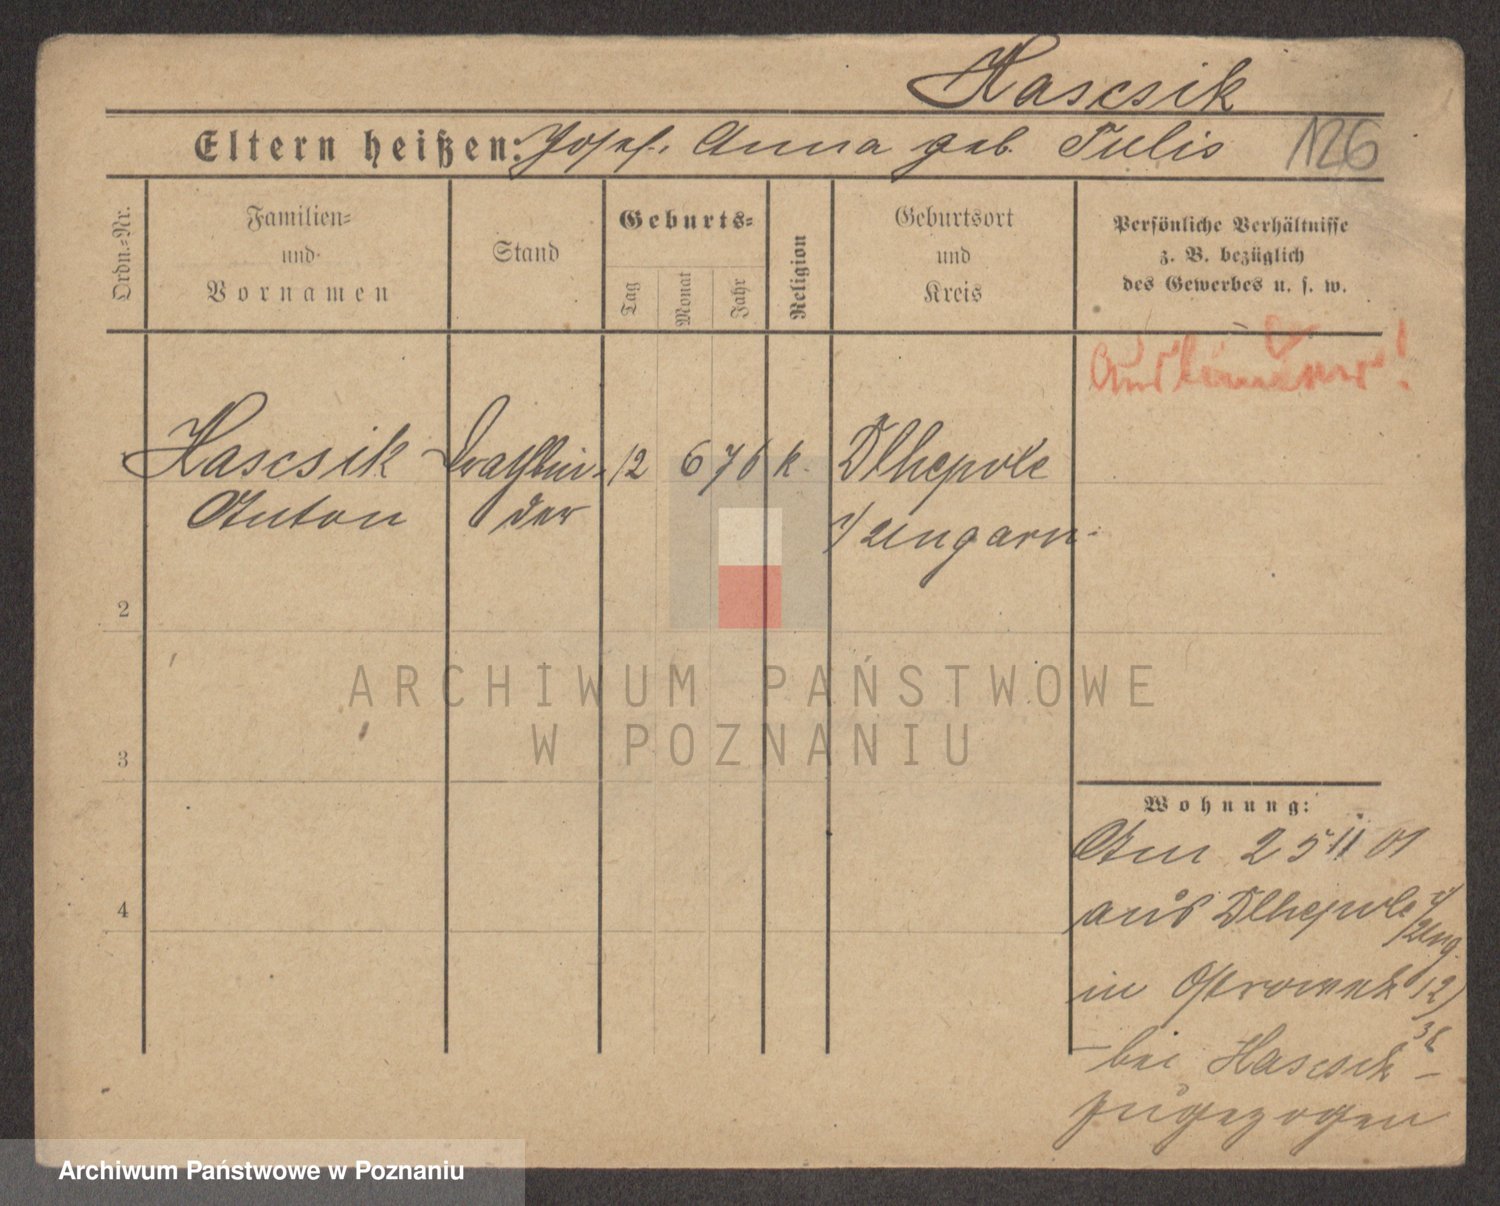 Hascsik
Eltern heißen: Josef. Anna geb. Tulis
126
Ordn.=Nr.
Familien=
und
Vornamen
Stand
Geburts=
Tag
Monat
Jahr
Religion
Geburtsort
und
Kreis
Persönliche Verhältnisse
z. B. bezüglich
des Gewerbes u. s. w.
Ausländer!
Hascsik Drathbin- 12 6 76 k. Dlhepole
Anton der i/ Ungarn.
2
ARCHIWUM PAŃSTWOWE
W POZNANIU
3
Wohnung:
Am 25 11 01
4
aus Dlhepole i/ Ung.
in
bei Hascsik -
zugezogen
Archiwum Państwowe w Poznaniu